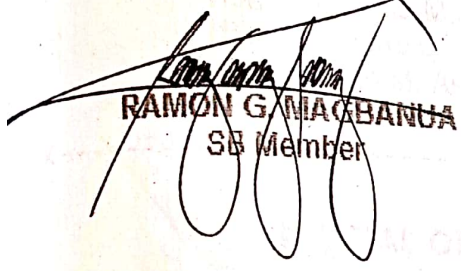 RAMON G. MAGBANUA
SB Member